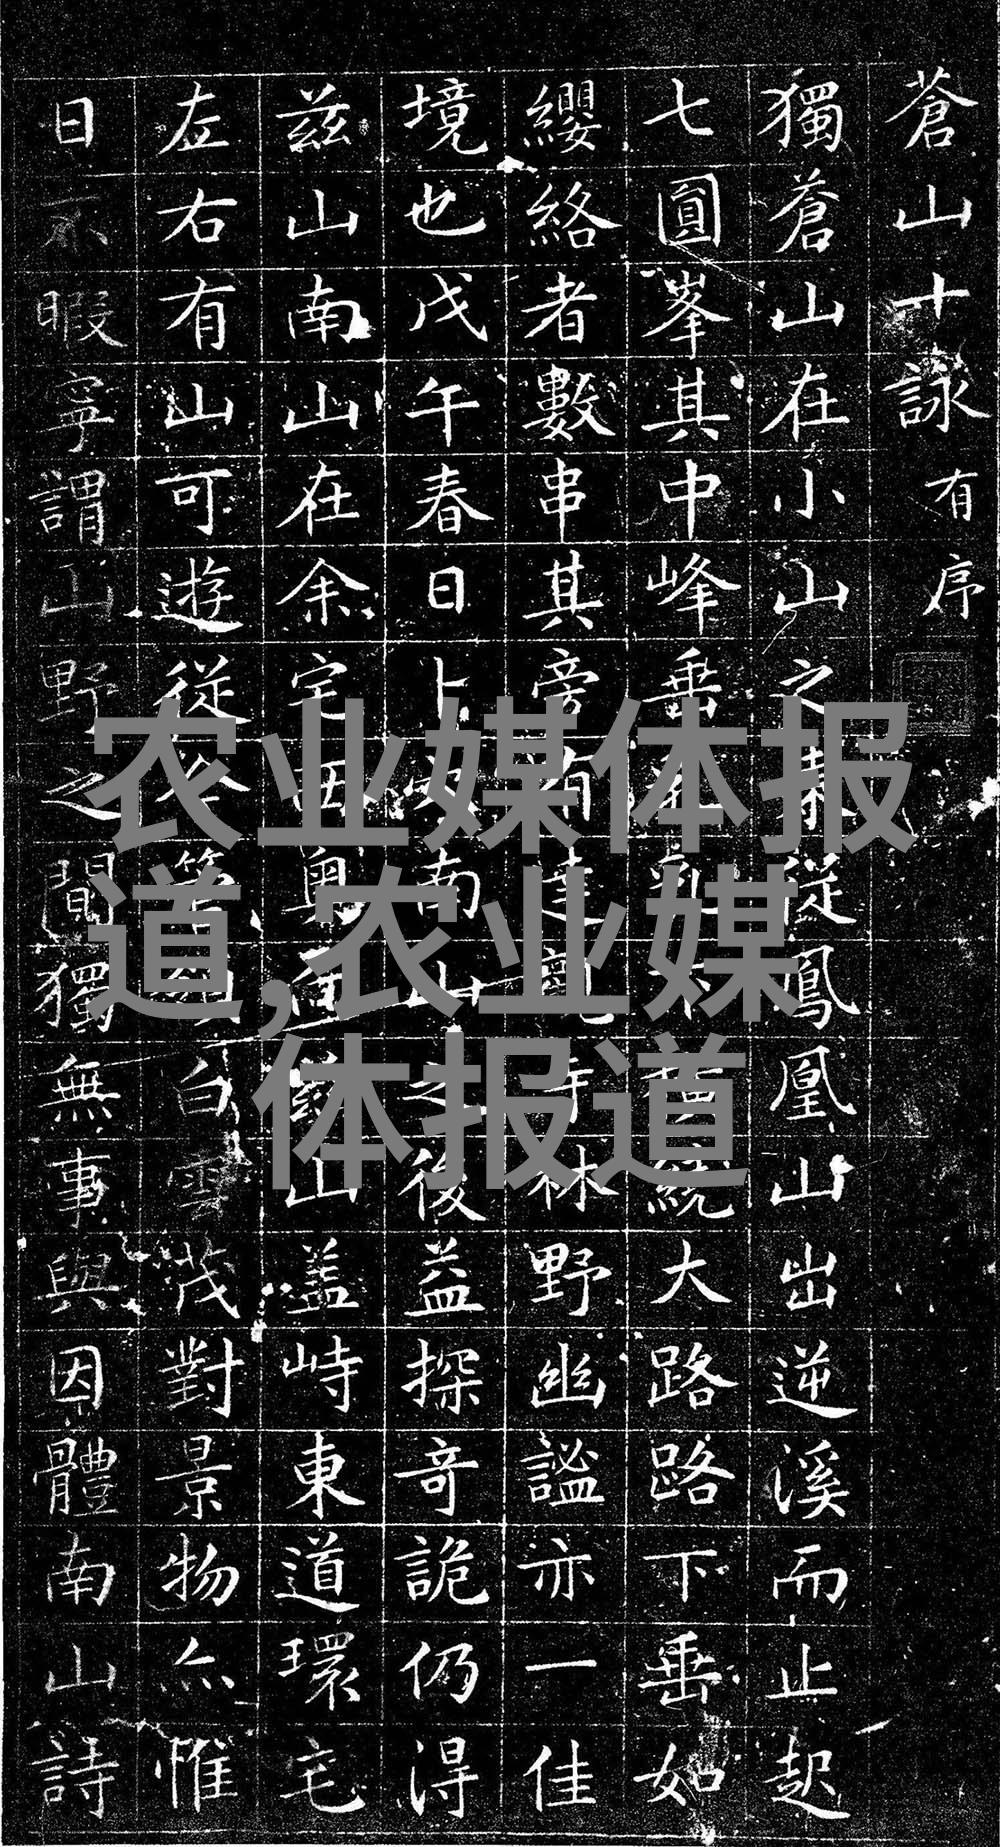 蒼山十詠有序
獨蒼山在小山之東從鳳凰山出逆溪而止起
七圓峯其中峰垂乳下莊統大路路下垂如
纓絡者數串其旁有達觀寺林野幽謐亦一佳
境也戊午春日上南山之後益探奇詭仍得
茲山南山在余宅西與直山蓋峙東道環宅
左右有山可遊從白雲茂對景物亦惟
日不暇寧謂山野之間獨無事與因體南山詩
农业媒体报
道,农业媒
体报道